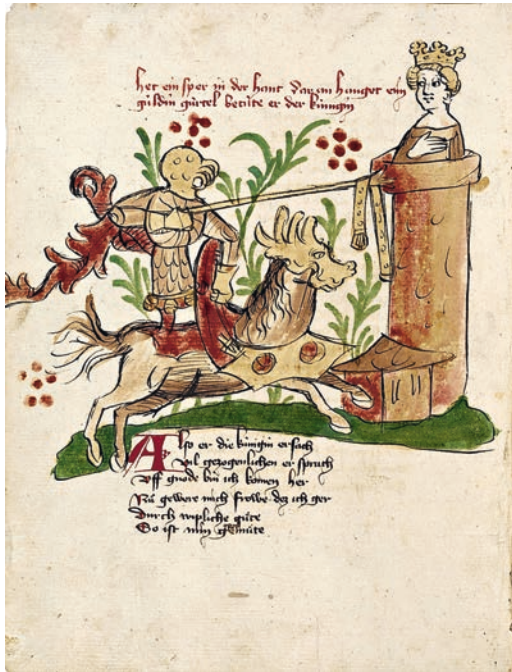 het ein sper in der hant Dar an hanget ein
guldin gürtel betüte er der künigin
Also er die künigin ersach
Vil gezogenlichen er sprach
Vff gnode bin ich komen her
Nü gewere mich frowe dez ich ger
Durch wipliche güte
So ist min gemüte